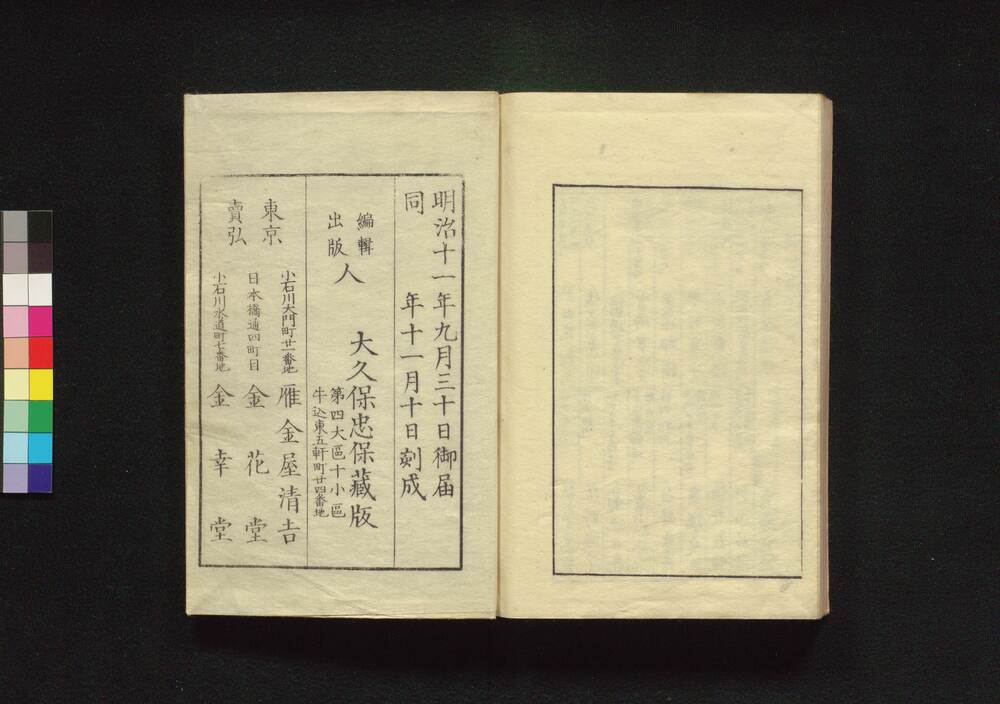 明治十一年九月三十日御届
同　年十一月十日刻成
編輯
出版
人
大久保忠保藏版
第四大區十小區
牛込東五軒町廿四番地
東京
賣弘
小石川大門町廿一番地　雁金屋清吉
日本橋通四町目　金花堂
小石川水道町七番地　金幸堂